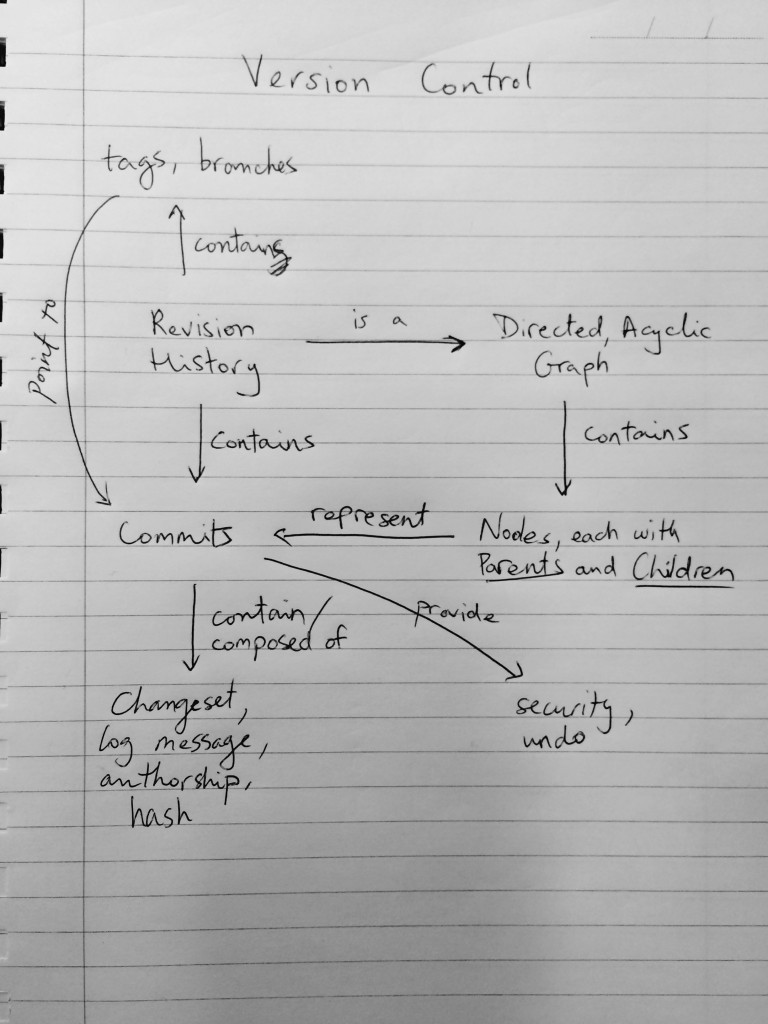 Version Control
tags, branches
contains
Point to
Revision
History
is a
Directed, Acyclic
Graph
contains
contains
Commits
represent
Nodes, each with
Parents and Children
contain/
composed of
provide
Changeset,
log message,
authorship,
hash
security,
undo